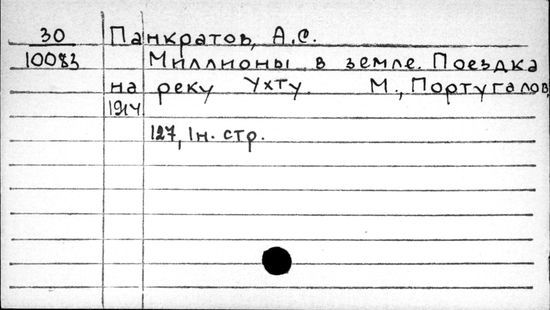 30 Панкратов, А.С.
10083 Миллионы в земле. Поездка
на реку Ухту. М., Португалов,
1914
127, 1н. стр.